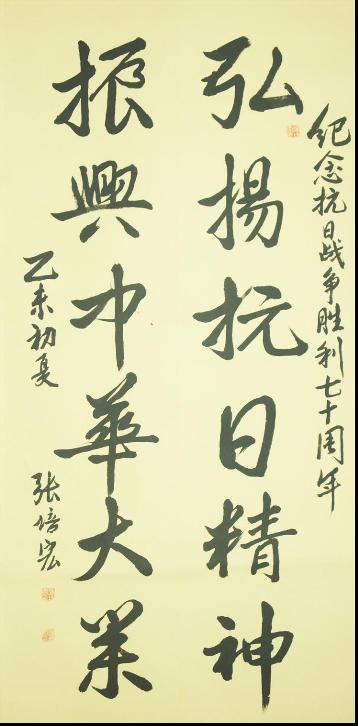 纪念抗日战争胜利七十周年
弘揚抗日精神
振興中華大業
乙未初夏
张培宏